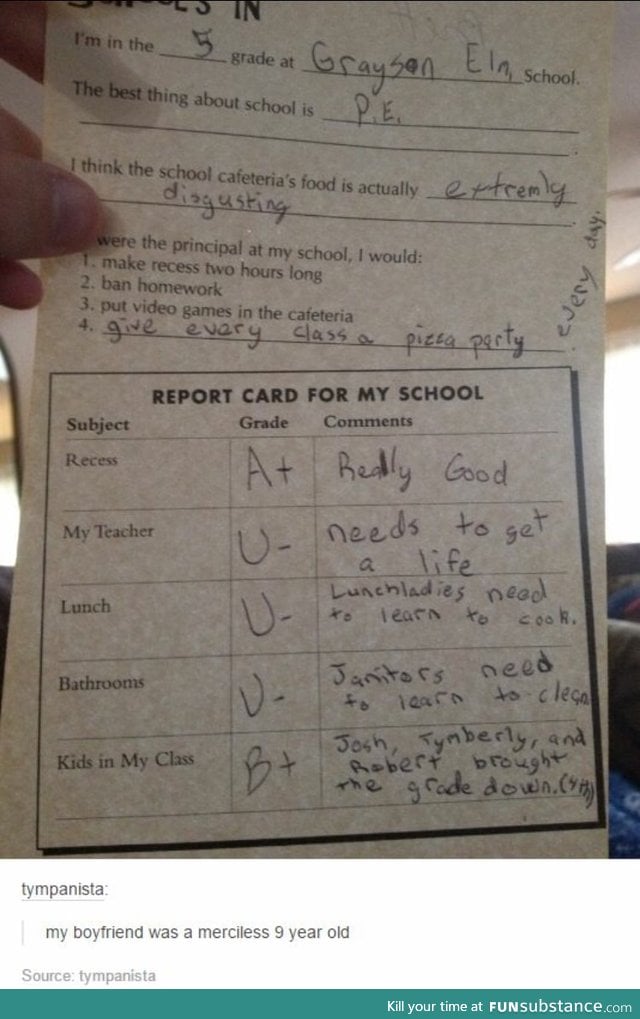 IN
I'm in the 5 grade at Grayson Elm School.
The best thing about school is P.E.
I think the school cafeteria's food is actually extremly
disgusting
were the principal at my school, I would:
1. make recess two hours long
2. ban homework
3. put video games in the cafeteria
4. give every class a pizza party every day.
REPORT CARD FOR MY SCHOOL
Subject Grade Comments
Recess A+ Really Good
My Teacher U- needs to get
a life
Lunch U- Lunchladies need
to learn to cook.
Bathrooms U- Janitors need
to learn to clean
Kids in My Class B+ Josh, Tymberly, and
Robert brought
the grade down.
tympanista:
my boyfriend was a merciless 9 year old
Source: tympanista
Kill your time at FUNsubstance.com